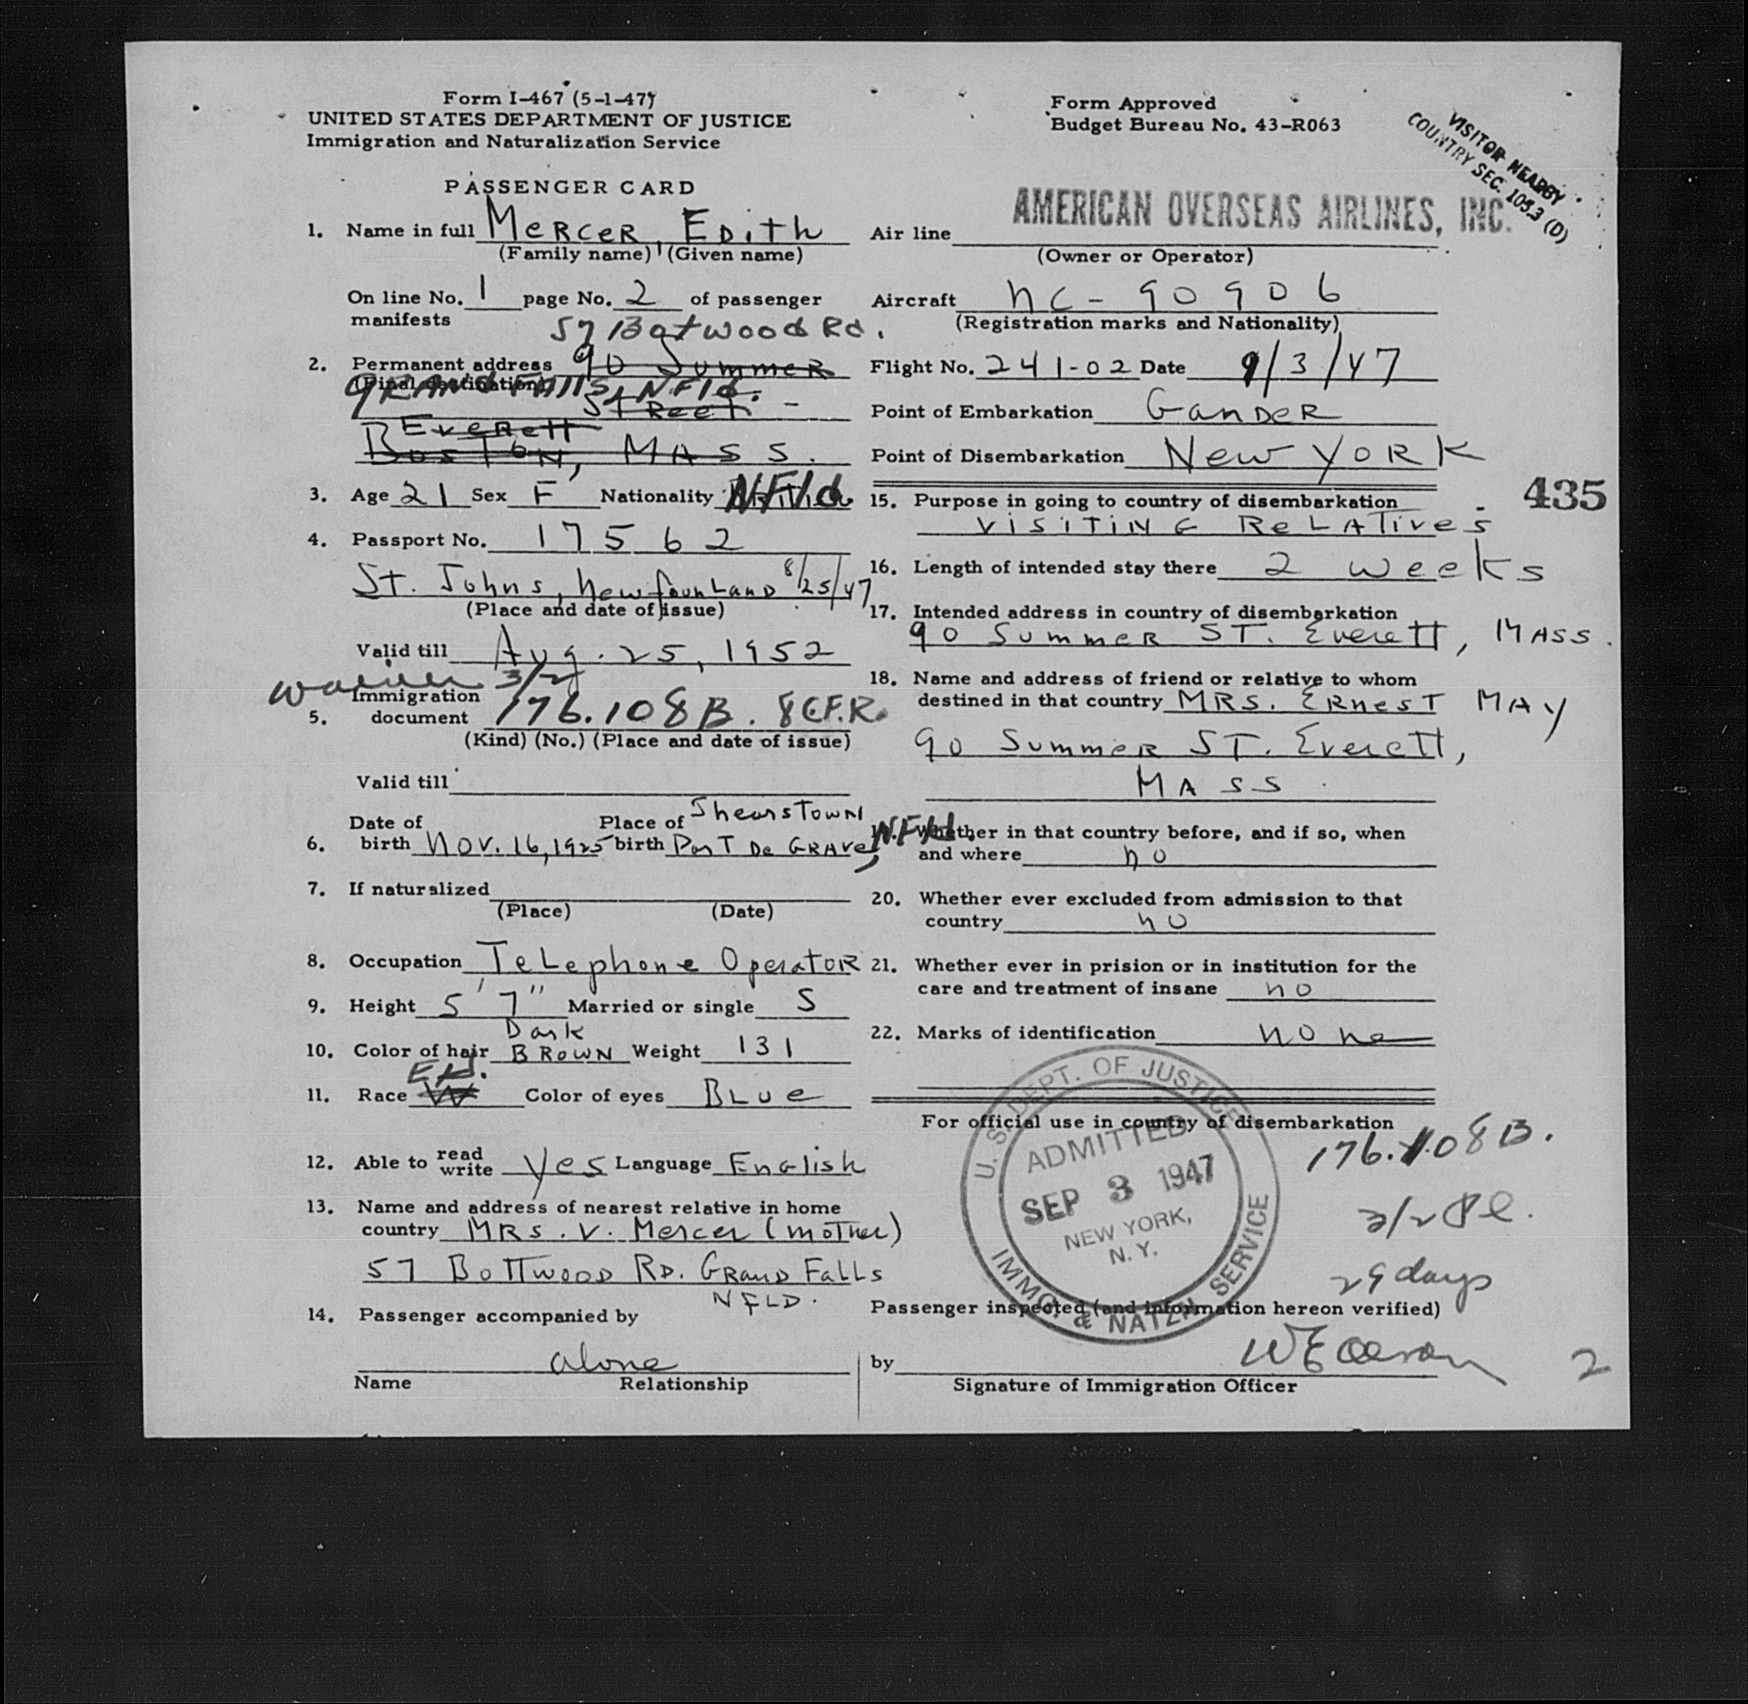 Form I-467 (5-1-47)
UNITED STATES DEPARTMENT OF JUSTICE
Immigration and Naturalization Service
Form Approved
Budget Bureau No. 43-R063
VISITOR NEARBY
COUNTRY SEC. 105.3 (D)
PASSENGER CARD
1. Name in full MERCER, EDITH
(Family name) (Given name)
On line No. 1 page No. 2 of passenger
manifests
57 Botwood Rd.
2. Permanent address 90 Summer
(Final destination)
GRAND FALLS, NFld.
Street -
Everett
Boston, MASS.
3. Age 21 Sex F Nationality NFld.
4. Passport No. 17562
St. Johns, Newfounland 8/25/47
(Place and date of issue)
Valid till Aug. 25, 1952
waiver 3/2
5. Immigration
document 176.108B. 8 C.F.R.
(Kind) (No.) (Place and date of issue)
Valid till
6. Date of
birth Nov. 16, 1925
Place of
birth Shearstown
Port De Grave, NFld.
7. If naturalized
(Place) (Date)
8. Occupation Telephone Operator
9. Height 5' 7" Married or single S
10. Color of hair Dark BROWN Weight 131
11. Race W Color of eyes BLue
12. Able to read write Yes Language English
13. Name and address of nearest relative in home
country MRS. V. Mercer (mother)
57 Bottwood RD. Grand Falls
NFLD.
14. Passenger accompanied by
alone
Name Relationship
Air line AMERICAN OVERSEAS AIRLINES, INC.
(Owner or Operator)
Aircraft NC-90906
(Registration marks and Nationality)
Flight No. 241-02 Date 9/3/47
Point of Embarkation Gander
Point of Disembarkation New York
435
15. Purpose in going to country of disembarkation
VISITING RELATIVES
16. Length of intended stay there 2 weeks
17. Intended address in country of disembarkation
90 Summer ST. Everett, MASS.
18. Name and address of friend or relative to whom
destined in that country MRS. ERNEST MAY
90 Summer ST. Everett,
MASS.
19. Whether in that country before, and if so, when
and where no
20. Whether ever excluded from admission to that
country no
21. Whether ever in prision or in institution for the
care and treatment of insane no
22. Marks of identification none
For official use in country of disembarkation
U. S. DEPT. OF JUSTICE
ADMITTED
SEP 3 1947
NEW YORK,
N. Y.
IMMG. & NATZN. SERVICE
176.108B.
3/2
29 days
Passenger inspected (and information hereon verified)
by
Signature of Immigration Officer
2